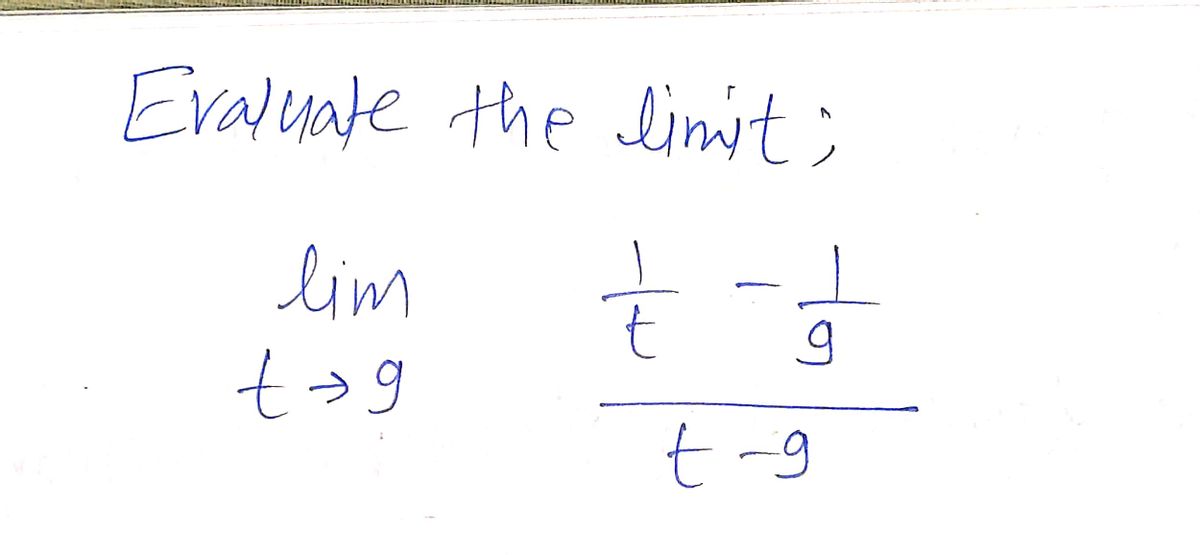 Evaluate the limit;
lim t→9 (1/t - 1/9) / (t - 9)